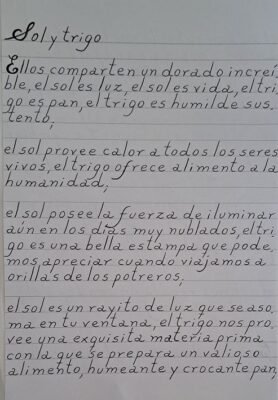 Sol y trigo
Ellos comparten un dorado increí,
ble, el sol es luz, el sol es vida, el tri,
go es pan, el trigo es humilde sus,
tento;
el sol provee calor a todos los seres
vivos, el trigo ofrece alimento a la
humanidad;
el sol posee la fuerza de iluminar
aún en los días muy nublados, el tri,
go es una bella estampa que pode,
mos apreciar cuando viajamos a
orillas de los potreros;
el sol es un rayito de luz que se aso,
ma en tu ventana, el trigo nos pro,
vee una exquisita materia prima
con la que se prepara un valioso
alimento, humeante y crocante pan,